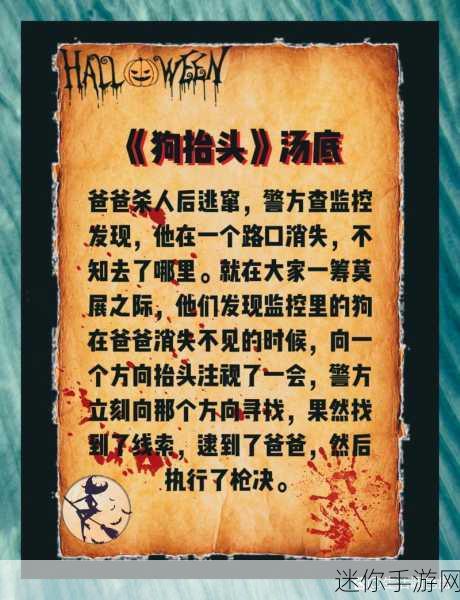 HALLOWEEN
《狗抬头》汤底
爸爸杀人后逃窜，警方查监控
发现，他在一个路口消失，不
知去了哪里。就在大家一筹莫
展之际，他们发现监控里的狗
在爸爸消失不见的时候，向一
个方向抬头注视了一会，警方
立刻向那个方向寻找，果然找
到了线索，逮到了爸爸，然后
执行了枪决。
迷你手游网